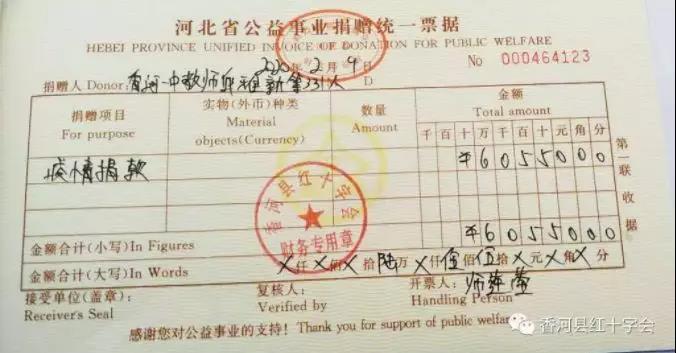 河北省公益事业捐赠统一票据
HEBEI PROVINCE UNIFIED INVOICE OF DONATION FOR PUBLIC WELFARE
2020年2月9日
Y M D
No 000464123
捐赠人 Donor: 香河一中教师 等331人
捐赠项目 For purpose
实物(外币)种类 Material objects(Currency)
数量 Amount
金额 Total amount
千 百 十 万 千 百 十 元 角 分
疫情捐款
¥6055000
香河县红十字会
财务专用章
金额合计(小写)In Figures
¥6055000
金额合计(大写)In Words
X仟X佰X拾陆万X仟伍佰伍拾X元X角X分
第一联 收据
接受单位(盖章):
Receiver's Seal
复核人:
Verified by
开票人:
Handling Person
感谢您对公益事业的支持! Thank you for support of public welfare
香河县红十字会